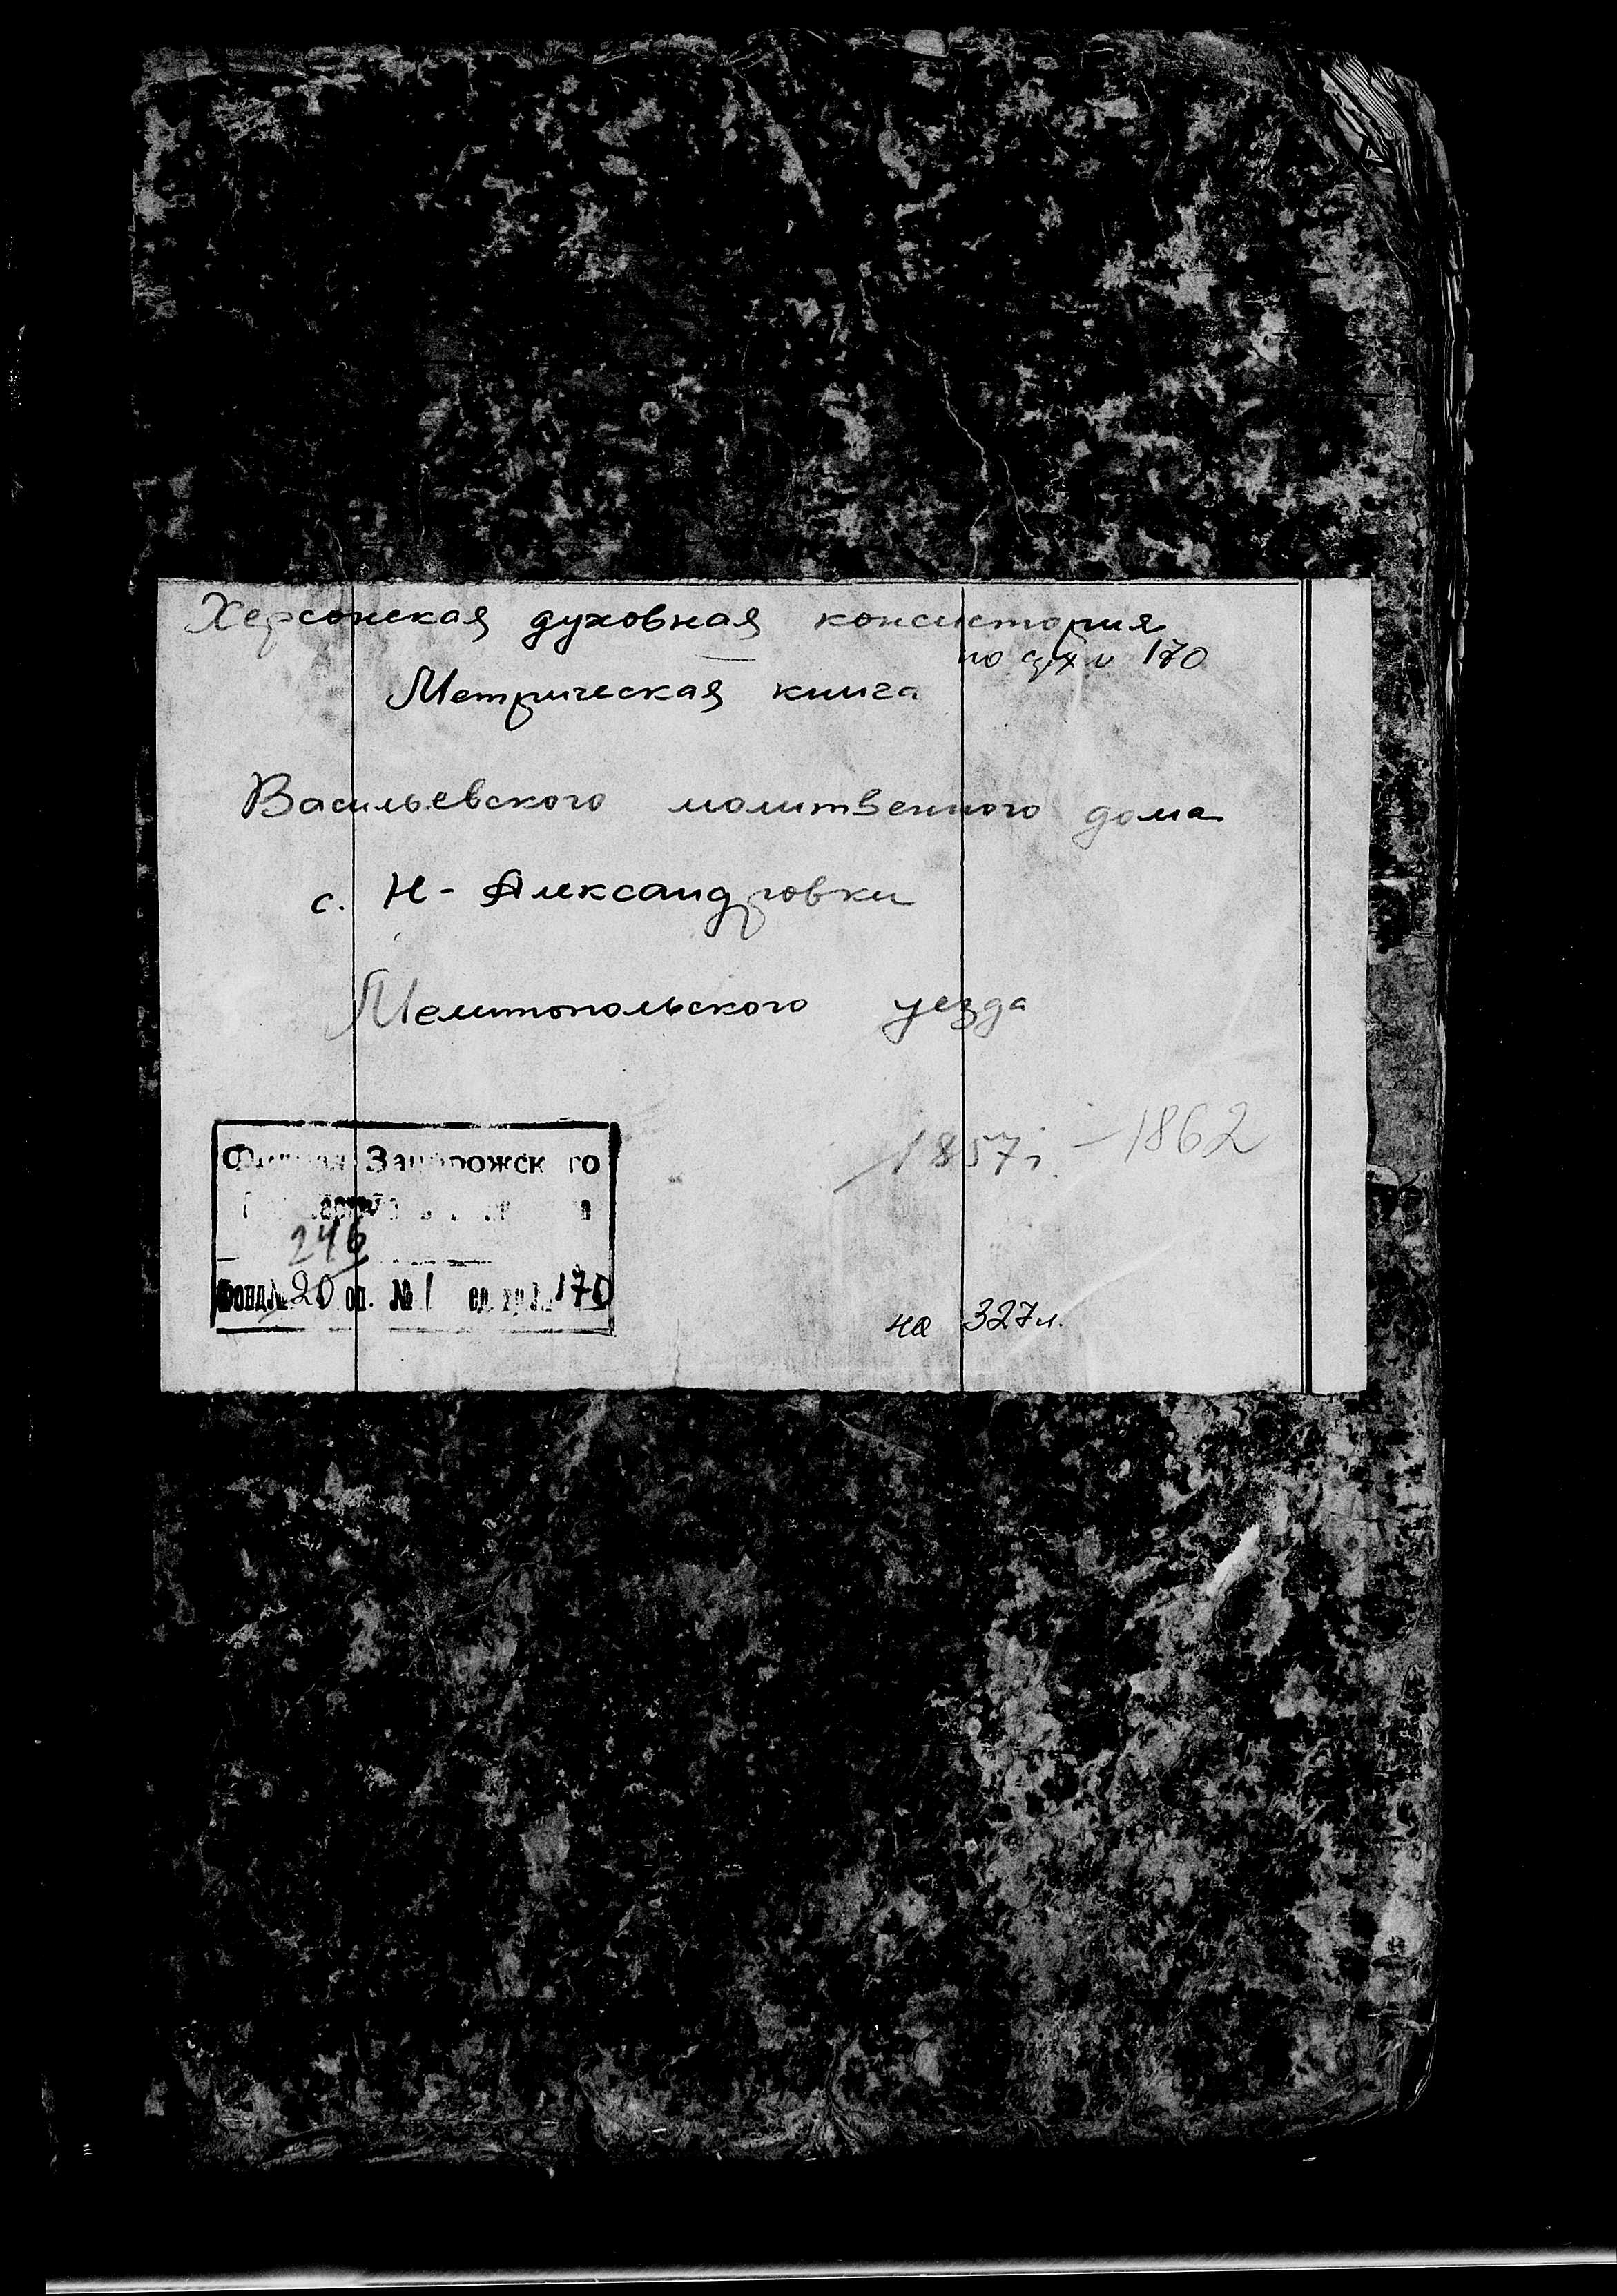 Херсонская духовная консистория
по 170
Метрическая книга
Васильевского молитвенного дома
с. Н- Александровки
Мелитопольского уезда
1857г. - 1862
Филиал Запорожского
246
Фонд № 20 оп. № 1 ед. хр. 170
на 327л.